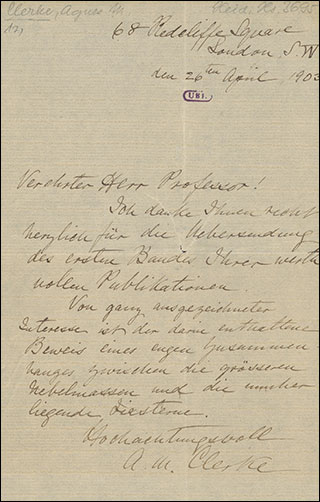 Clerke, Agnes M.
68 Redcliffe Square
London, S.W
den 26ten April 1903
UBI.
Verehrter Herr Professor!
Ich danke Ihnen recht
herzlich für die Uebersendung
des ersten Bandes Ihrer werth
vollen Publikationen.
Von ganz ausgezeichneter
Interesse ist der darin enthaltene
Beweis eines engen Zusammen
hanges zwischen die grösseren
Nebelmassen und die umher
liegende Fixsterne.
Hochachtungsvoll
A. M. Clerke